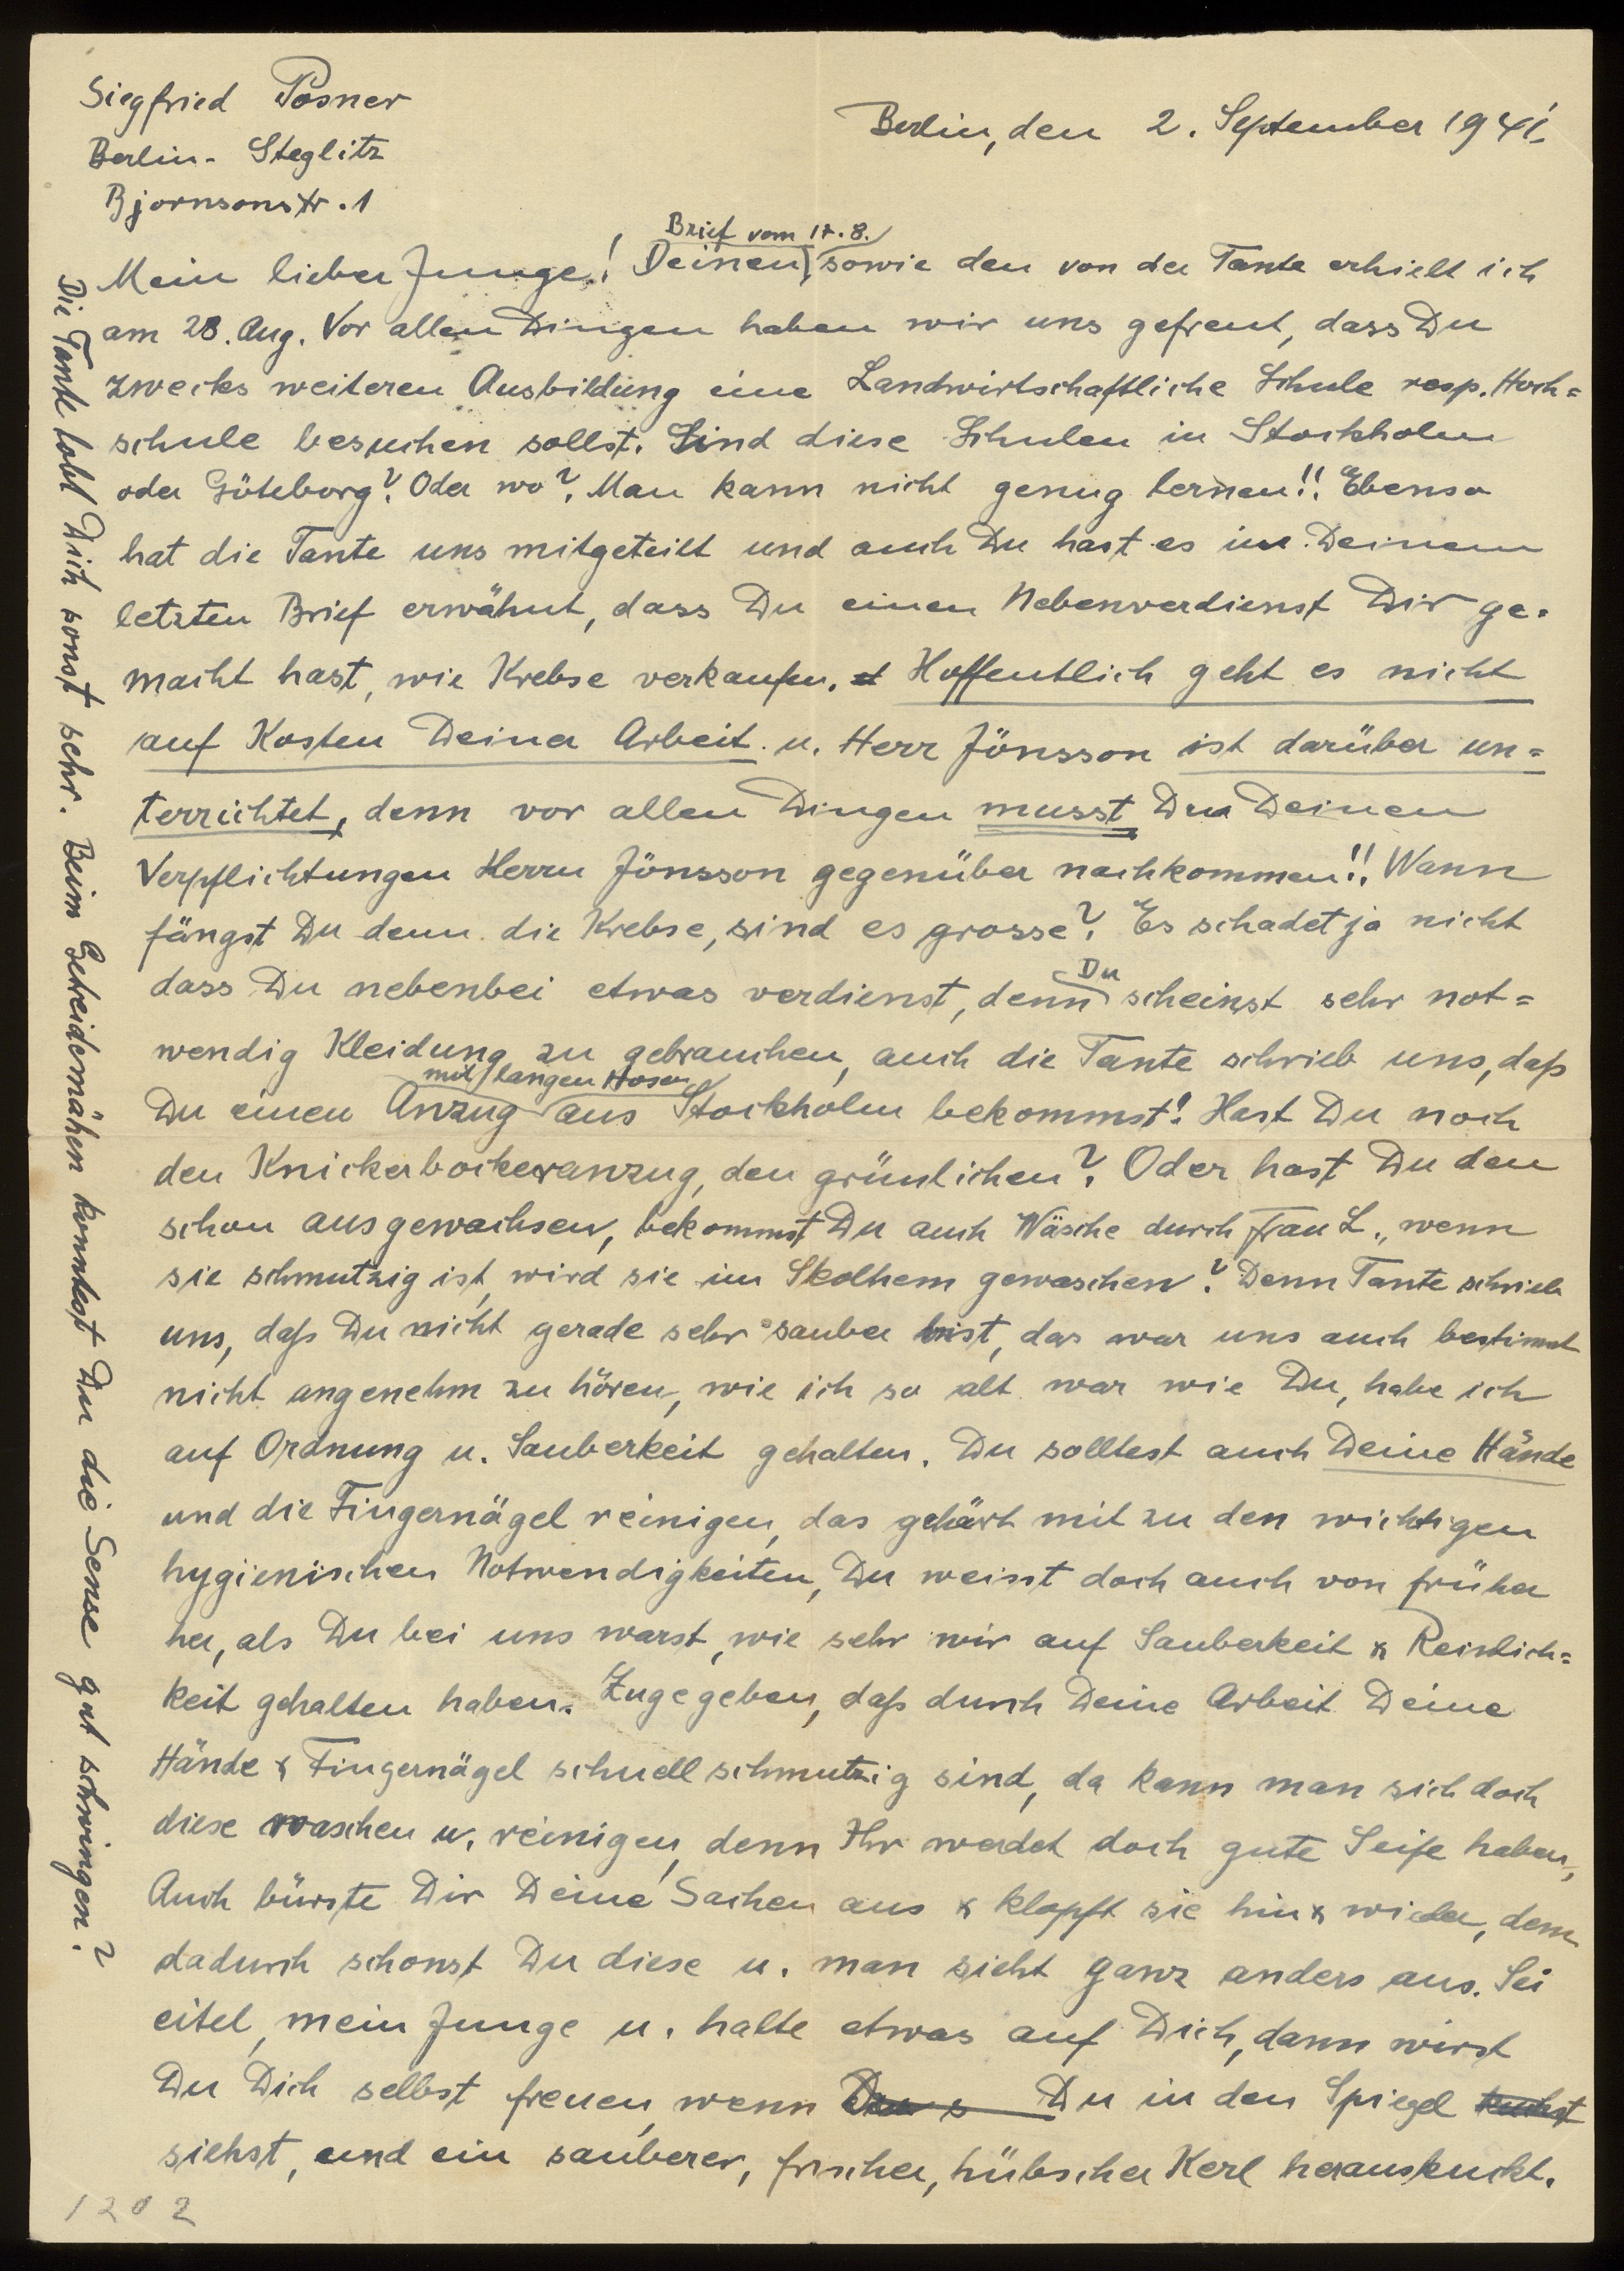 Siegfried Posner
Berlin-Steglitz
Bjornsonstr. 1
Berlin, den 2. September 1941.
Brief vom 17.8.
Mein lieber Junge! Deinen, sowie den von der Tante erhielt ich
am 28. Aug. Vor allen Dingen haben wir uns gefreut, dass Du
zwecks weiteren Ausbildung eine Landwirtschaftliche Schule resp. Hoch=
schule besuchen sollst. Sind diese Schulen in Stockholm
oder Göteborg? Oder wo? Man kann nicht genug lernen!! Ebenso
hat die Tante uns mitgeteilt und auch Du hast es in Deinem
letzten Brief erwähnt, dass Du einen Nebenverdienst Dir ge-
macht hast, wie Krebse verkaufen. Hoffentlich geht es nicht
auf Kosten Deiner Arbeit u. Herr Jönsson ist darüber un=
terrichtet, denn vor allen Dingen musst Du Deinen
Verpflichtungen Herrn Jönsson gegenüber nachkommen!! Wann
fängst Du denn die Krebse, sind es grosse? Es schadet ja nicht
dass Du nebenbei etwas verdienst, denn Du scheinst sehr not=
wendig Kleidung zu gebrauchen, auch die Tante schrieb uns, daß
mit langen Hosen
Du einen Anzug aus Stockholm bekommst! Hast Du noch
den Knickerbockeranzug, den grünlichen? Oder hast Du den
schon ausgewachsen, bekommst Du auch Wäsche durch Frau L., wenn
sie schmutzig ist, wird sie im Skolhem gewaschen? Denn Tante schrieb
uns, daß Du nicht gerade sehr sauber bist, das war uns auch bestimmt
nicht angenehm zu hören, wie ich so alt war wie Du, habe ich
auf Ordnung u. Sauberkeit gehalten. Du solltest auch Deine Hände
und die Fingernägel reinigen, das gehört mit zu den wichtigen
hygienischen Notwendigkeiten, Du weisst doch auch von früher
her, als Du bei uns warst, wie sehr wir auf Sauberkeit & Reinlich=
keit gehalten haben. Zugegeben, daß durch Deine Arbeit Deine
Hände & Fingernägel schnell schmutzig sind, da kann man sich doch
diese waschen u. reinigen, denn Ihr werdet doch gute Seife haben,
Auch bürste Dir Deine Sachen aus & klopft sie hin & wieder, denn
dadurch schonst Du diese u. man sieht ganz anders aus. Sei
eitel, mein Junge u. halte etwas auf Dich, dann wirst
Du Dich selbst freuen, wenn Du in den Spiegel kuckst
siehst, und ein sauberer, frischer, hübscher Kerl herauskuckt.
Die Tante lobt Dich sonst sehr. Beim Getreidemähen konntest Du die Sense gut schwingen?
1202